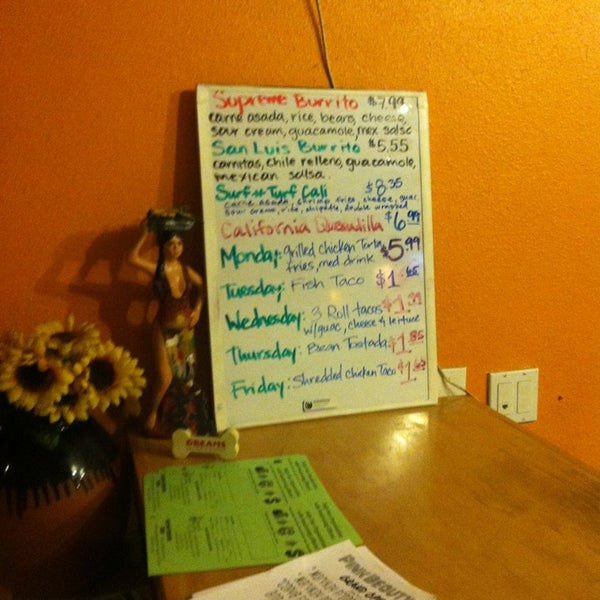 Supreme Burrito $7.99
carne asada, rice, beans, cheese,
sour cream, guacamole, mex salsa
San Luis Burrito $5.55
carnitas, chile relleno, guacamole,
mexican salsa.
Surf + Turf Cali $8.35
carne asada, shrimp, fries, cheese, guac
sour cream, rice, chipotle, double wrapped
California Quesadilla $6.99
Monday: grilled chicken Torta $5.99
fries, med drink
Tuesday: Fish Taco $1.65
Wednesday: 3 Roll tacos $1.39
w/guac, cheese & lettuce
Thursday: Bean Tostada $1.85
Friday: Shredded chicken Taco $1.69
DREAMS
PINKBEAUTY
GRAND